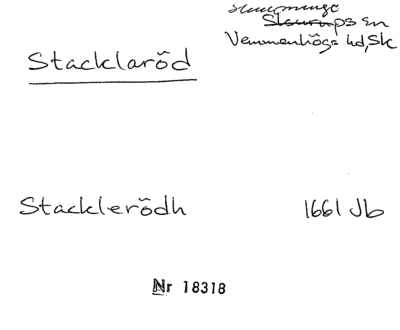 Skurups sn
Vemmenhögs hd, Sk
Stacklaröd
Stacklerödh 1661 Jb
Nr 18318